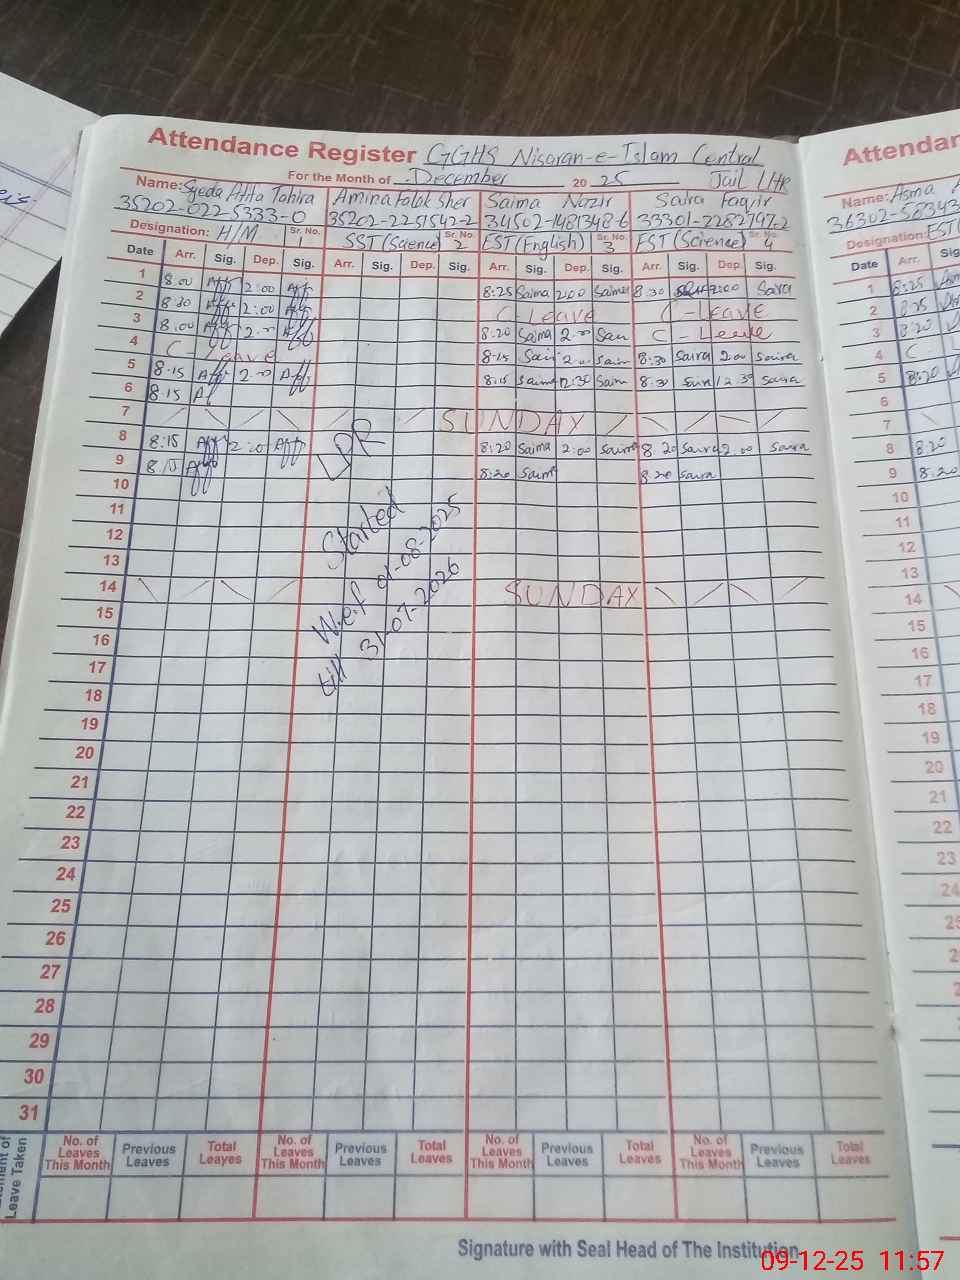 Attendance Register GGHS Nisaran-e-Islam Central
For the Month of December 2025 Jail LHR
Name: Syeda Atifa Tahira Amina Falak Sher Saima Nazir Saira Faqir
35202-0225333-0 35202-2251542-2 34502-1481348-6 33301-2282797-2
Designation: H/M Sr. No. 1 SST (Science) Sr. No. 2 EST (English) Sr. No. 3 EST (Science) Sr. No. 4
Date Arr. Sig. Dep. Sig. Arr. Sig. Dep. Sig. Arr. Sig. Dep. Sig. Arr. Sig. Dep. Sig.
1 8:00 2:00 8:25 Saima 2:00 Saima 8:30 2:00 Saira
2 8:30 2:00 C-Leave C-Leave
3 8:00 8:20 Saima C-Leave
4 C-Leave 8:15 8:30 Saira 2:00 Saira
5 8:15 8:15 Saima 12:30 8:30 12:30 Saira
6 8:15
7 SUNDAY
8 8:15 2:00 8:20 Saima 2:00 Saima 8:20 Saira 2:00 Saira
9 8:20 Saima 8:20 Saira
10
11
12
13
14 SUNDAY
15
16
17
18
19
20
21
22
23
24
25
26
27
28
29
30
31
LPR
Started
W.e.f 01-08-2025
till 31-07-2026
Leave Taken
No. of Leaves This Month Previous Leaves Total Leaves No. of Leaves This Month Previous Leaves Total Leaves No. of Leaves This Month Previous Leaves Total Leaves No. of Leaves This Month Previous Leaves Total Leaves
Signature with Seal Head of The Institution
Name: Asma
Designation: EST
Date Arr.
1 8:25
2 8:25
3 8:20
4 C-
5 8:20
6
7
8 8:20
9 8:20
10
11
12
13
14
15
16
17
18
19
20
21
22
23
24
09-12-25 11:57